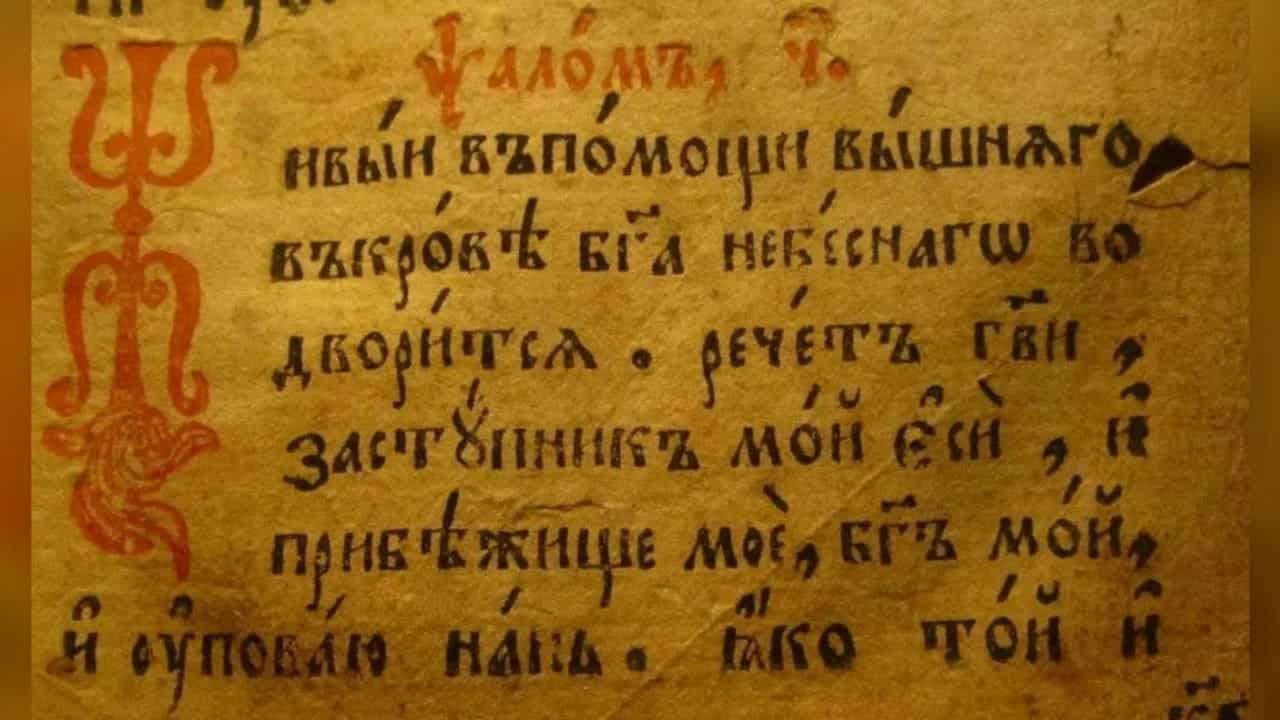 Ѱало́мъ, ч҃.
Живы́и въпо́мощи вы́шнѧго
въкро́вѣ бг҃а небе́снагѡ во
двори́тсѧ . рече́тъ гв҃и ,
застꙋ́пникъ мо́й є҆сѝ , и҆
прибѣ́жище моѐ, бг҃ъ мо́й,
и҆ оу҆пова́ю на́нь . ꙗ҆́ко то́й и҆